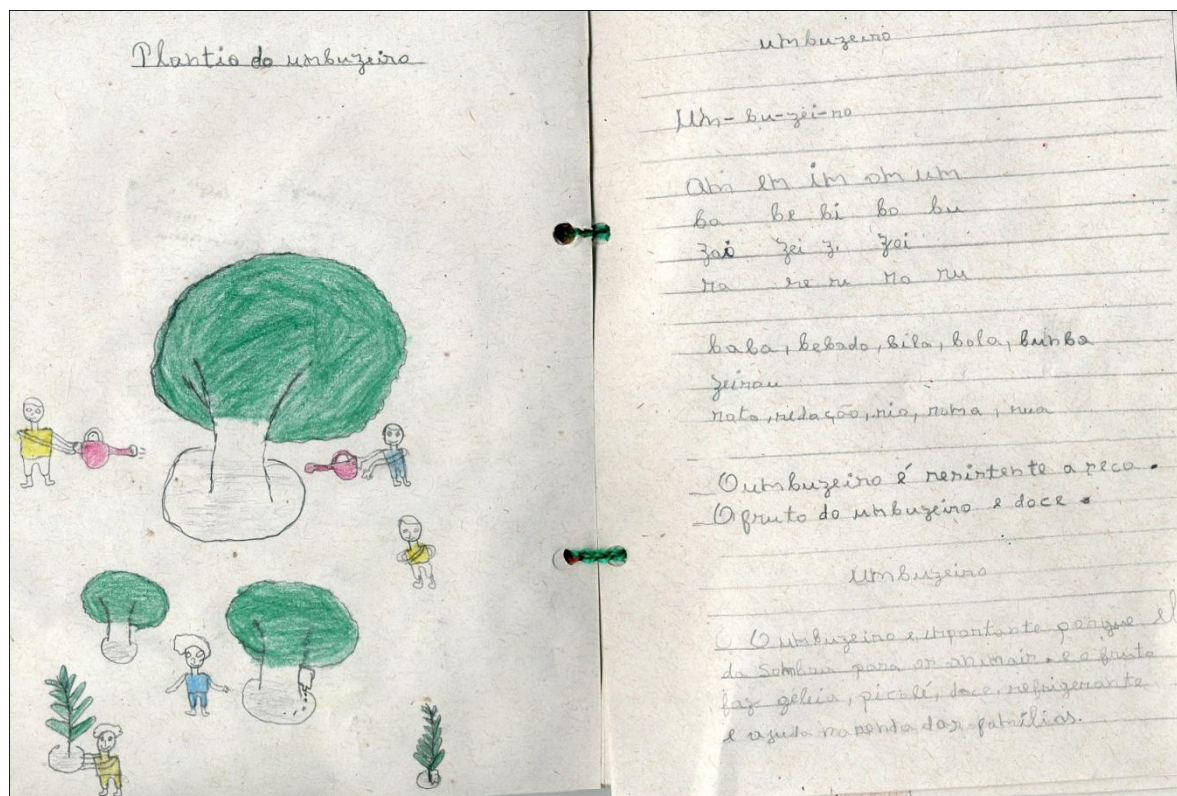 Plantio do umbuzeiro
umbuzeiro
Um-bu-zei-ro
am em im om um
ba be bi bo bu
zai zei zi zoi
ra re ri ro ru
baba, bebado, bila, bola, bumba
zeirou
rato, redação, rio, roma, rua
_O umbuzeiro é resistente a seca.
_O fruto do umbuzeiro e doce.
Umbuzeiro
O umbuzeiro e importante porque el
da sombra para os animais. e o fruto
faz geleia, picolé, doce, refrigerante
e ajuda na renda das famílias.